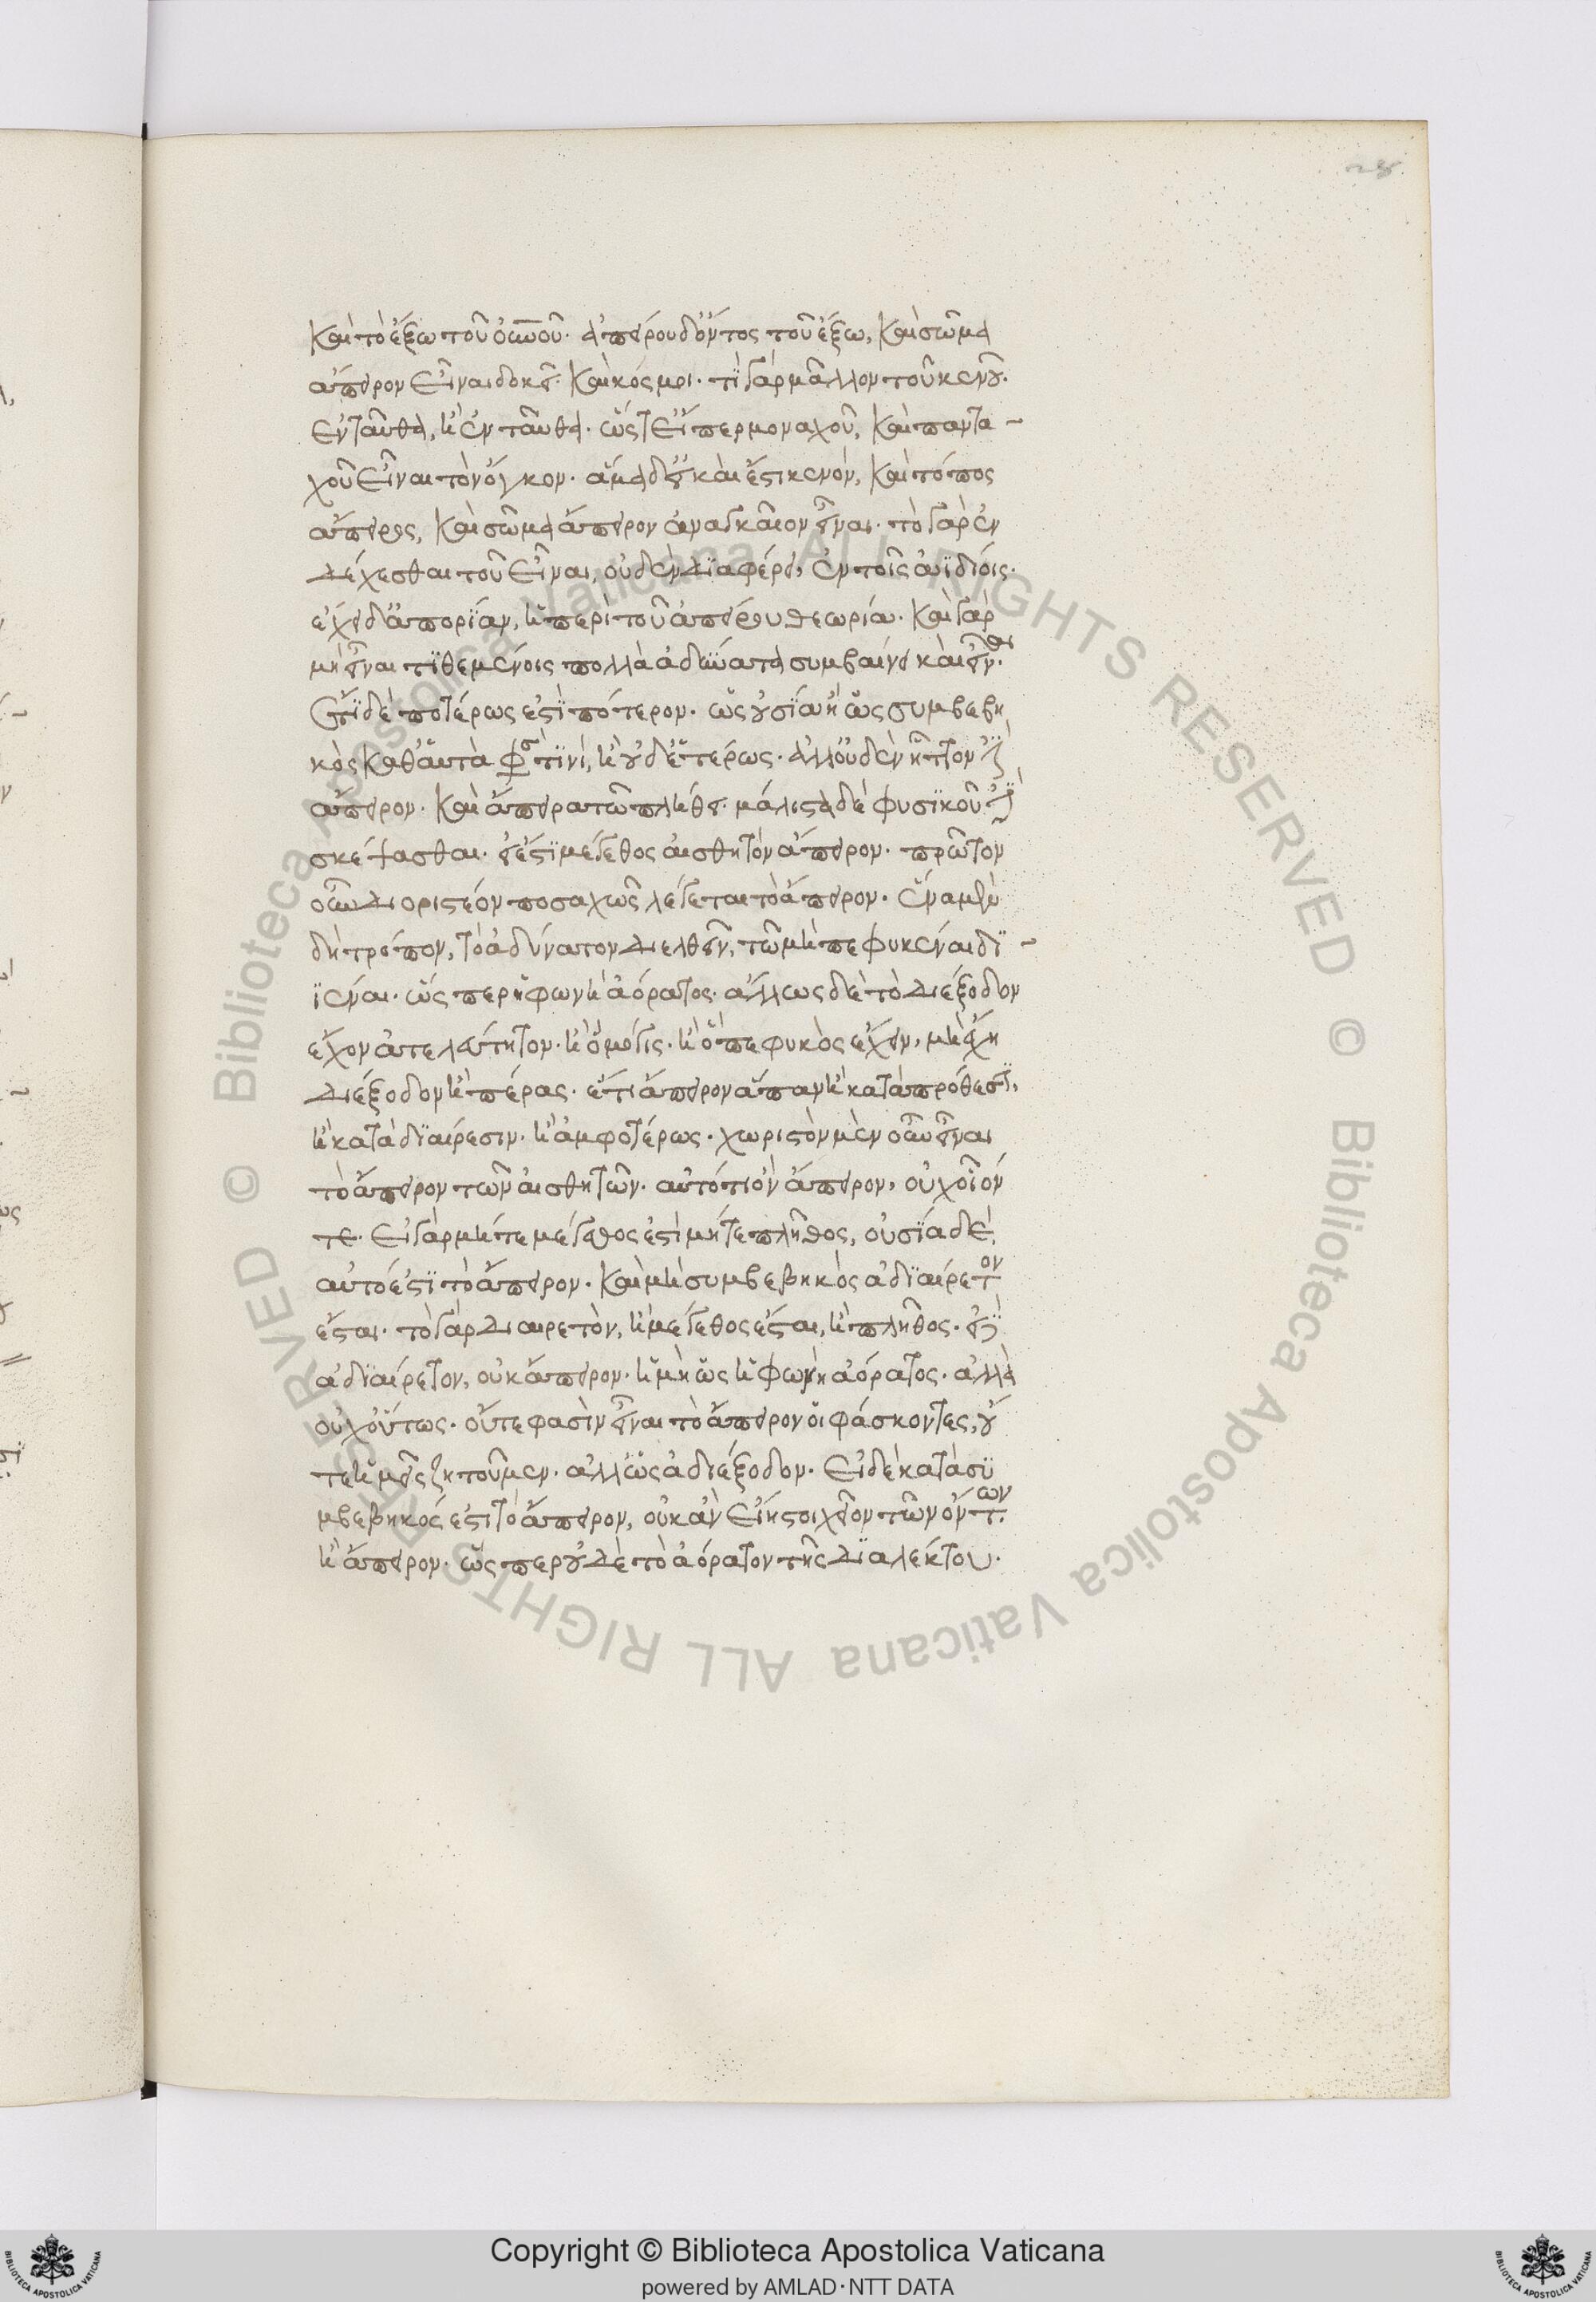 28
καὶ τὸ ἔξω τοῦ οὐνοῦ· ἀπείρου δ' ὄντος τοῦ ἔξω, καὶ σῶμα
ἄπειρον εἶναι δοκεῖ· καὶ κόσμοι· τί γὰρ μᾶλλον τοῦ κενοῦ·
ἐνταῦθα, ἢ ἐνταῦθα· ὥστ' εἴπερ μοναχοῦ, καὶ παντα-
χοῦ εἶναι τὸν ὄγκον· ἅμα δ' εἰ καὶ ἔστι κενόν, καὶ τόπος
ἄπειρος, καὶ σῶμα ἄπειρον ἀναγκαῖον εἶναι· τὸ γὰρ ἐν
δέχεσθαι τοῦ εἶναι, οὐδὲν διαφέρει, ἐν τοῖς ἀϊδίοις·
ἔχει δ' ἀπορίαν, ἡ περὶ τοῦ ἀπείρου θεωρία· καὶ γὰρ
μὴ εἶναι τιθεμένοις πολλὰ ἀδύνατα συμβαίνει καὶ εἶναι·
ἔτι δὲ ποτέρως ἐστὶ πότερον· ὡς οὐσία ἢ ὡς συμβεβη
κὸς καθ' αὑτὸ φύσει τινί, ἢ οὐδετέρως· ἀλλ' οὐδὲν ἧττον ἐστὶν
ἄπειρον· καὶ ἄπειρα τῶ πλήθει· μάλιστα δὲ φυσικοῦ ἐστὶ
σκέψασθαι· εἰ ἔστι μέγεθος αἰσθητὸν ἄπειρον· πρῶτον
οὖν διοριστέον ποσαχῶς λέγεται τὸ ἄπειρον· ἕνα μὲν
δὴ τρόπον, τὸ ἀδύνατον διελθεῖν, τῶ μὴ πεφυκέναι δι-
ϊέναι· ὥσπερ ἡ φωνὴ ἀόρατος· ἄλλως δὲ τὸ διέξοδον
ἔχον ἀτελεύτητον· ἢ ὃ μόγις· ἢ ὃ πεφυκὸς ἔχειν, μὴ ἔχει
διέξοδον ἢ πέρας· ἔτι ἄπειρον ἅπαν ἢ κατὰ πρόθεσιν,
ἢ κατὰ διαίρεσιν· ἢ ἀμφοτέρως· χωριστὸν μὲν οὖν εἶναι
τὸ ἄπειρον τῶν αἰσθητῶν· αὐτό τι ὂν ἄπειρον, οὐχ οἷον
τε· εἰ γὰρ μήτε μέγεθος ἐστὶ μήτε πλῆθος, οὐσία δὲ,
αὐτό ἐστι τὸ ἄπειρον· καὶ μὴ συμβεβηκὸς ἀδιαίρετον
ἔσται· τὸ γὰρ διαιρετὸν, ἢ μέγεθος ἔσται, ἢ πλῆθος· εἰ δὲ
ἀδιαίρετον, οὐκ ἄπειρον· εἰ μὴ ὡς ἡ φωνὴ ἀόρατος· ἀλλὰ
οὐχ οὕτως· οὔτε φασὶν εἶναι τὸ ἄπειρον οἱ φάσκοντες, οὔ
τε ἡμεῖς ζητοῦμεν· ἀλλ' ὡς ἀδιέξοδον· εἰ δὲ κατὰ συ
μβεβηκός ἐστι τὸ ἄπειρον, οὐκ ἂν εἴη στοιχεῖον τῶν ὄντων·
ἢ ἄπειρον· ὥσπερ οὐδὲ τὸ ἀόρατον τῆς διαλέκτου·
© Biblioteca Apostolica Vaticana ALL RIGHTS RESERVED © Biblioteca Apostolica Vaticana ALL RIGHTS RESERVED
Copyright © Biblioteca Apostolica Vaticana
powered by AMLAD·NTT DATA